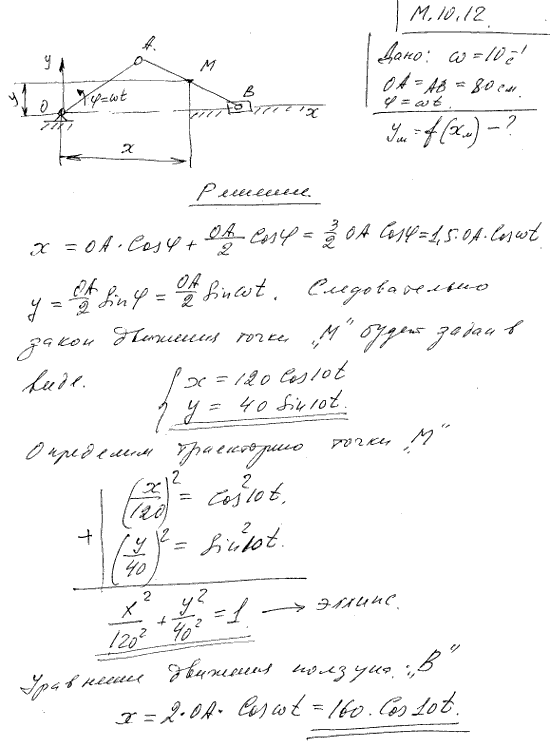 М.10.12.
Дано: ω = 10 c⁻¹
OA = AB = 80 см.
φ = ωt.
yₘ = f(xₘ) – ?
A.
y
M
y
φ=ωt
B
O
x
x
Решение
x = OA·Cosφ + OA/2 Cosφ = 3/2 OA Cosφ = 1,5·OA·Cosωt
y = OA/2 Sinφ = OA/2 Sinωt. Следовательно
закон движения точки „М" будет задан в
виде. { x = 120 Cos10t
y = 40 Sin10t.
Определим траекторию точки „М"
(x/120)² = Cos²10t.
+
(y/40)² = Sin²10t.
x²/120² + y²/40² = 1 → эллипс.
Уравнение движения ползуна: „В"
x = 2·OA·Cosωt = 160·Cos10t.